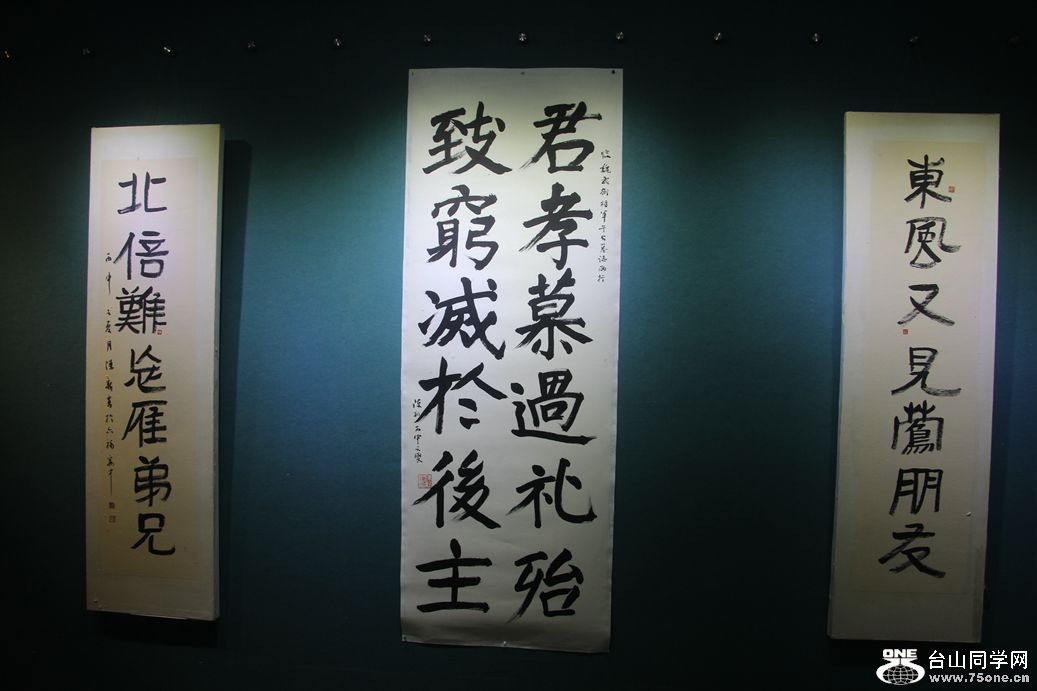 東風又見鶯朋友
君孝慕過礼殆
致窮滅於後主
北倍難忘雁弟兄
丙申之夏月
ONE
台山同学网
www.75one.cn